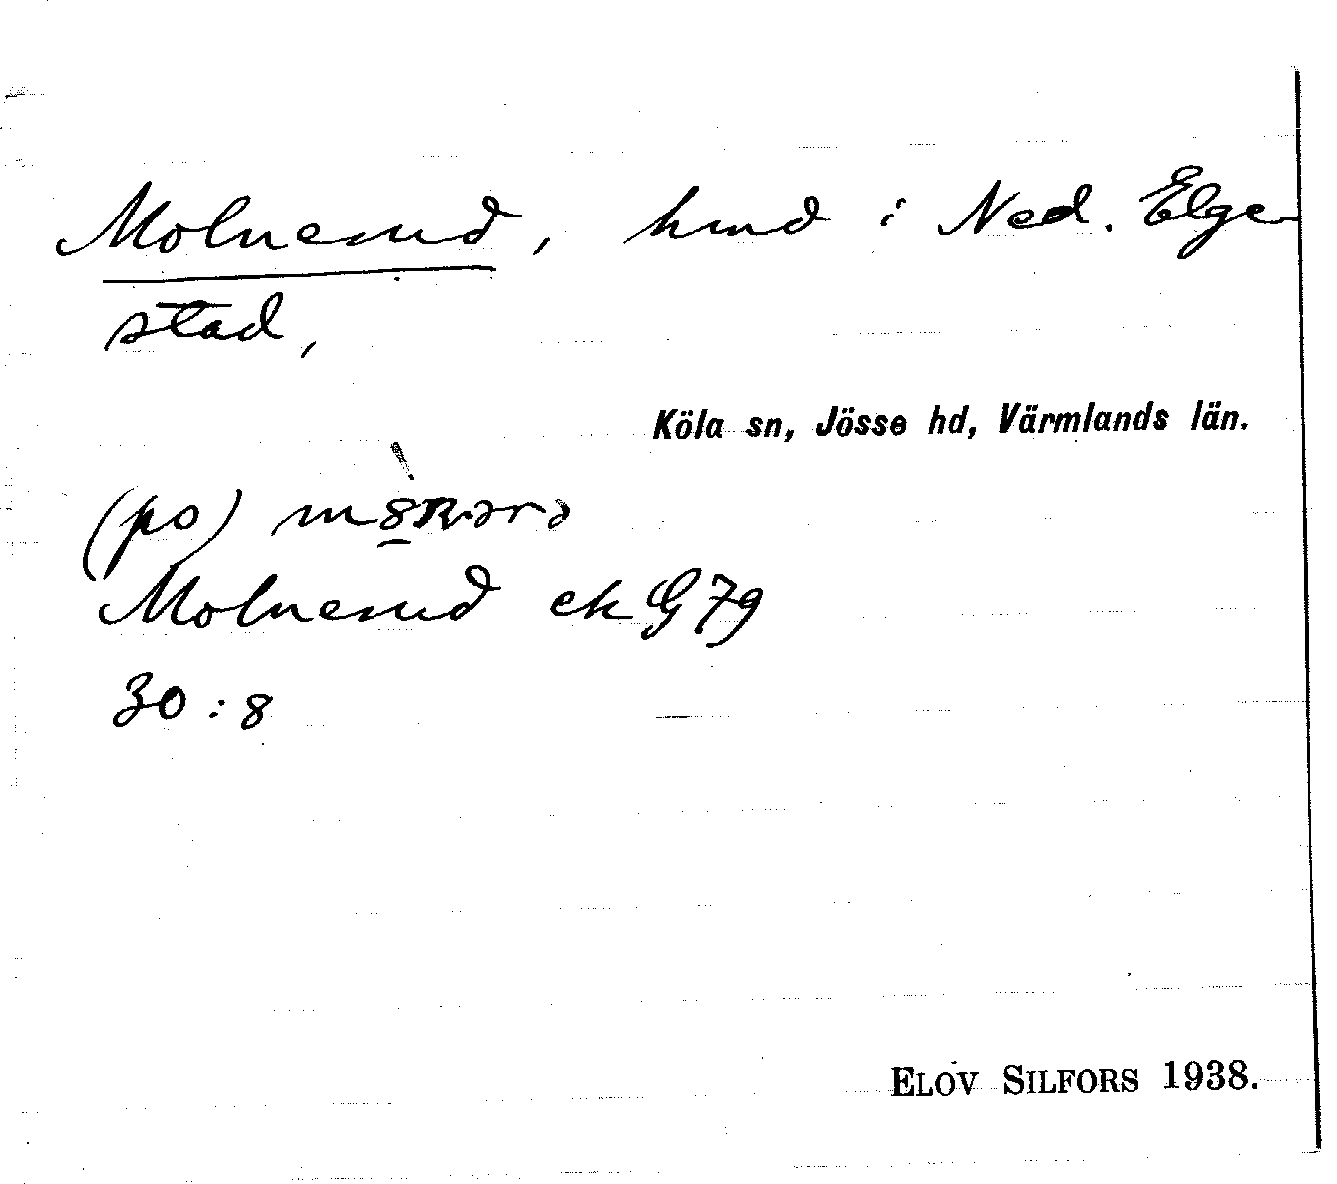 Molnerud, hmd i Ned. Elge-
stad,
Köla sn, Jösse hd, Värmlands län.
(po)
Molnerud ek G 79
30:8
ELOV SILFORS 1938.